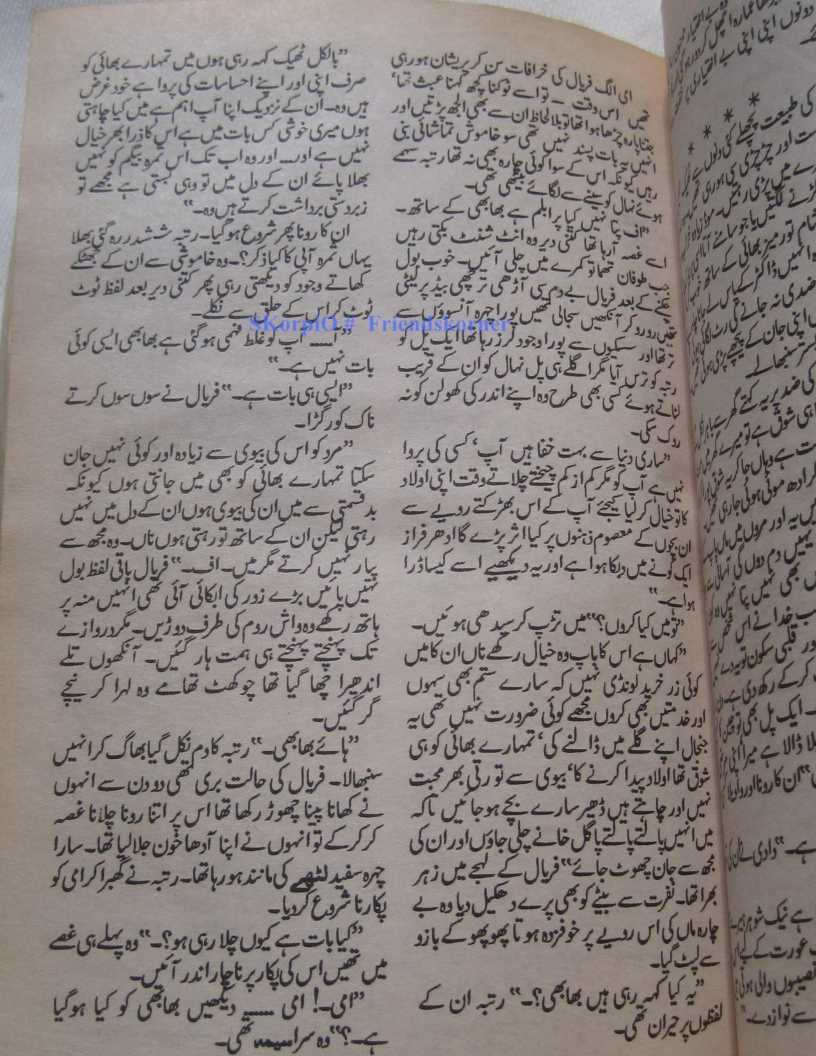 امی الگ فریال کی خرافات سن کر پریشان ہو رہی
تھیں اس وقت تو اسے ٹوکنا کچھ کہنا عبث تھا‘
جتنا پارہ چڑھا ہوا تھا تو بلا لحاظ ان سے بھی الجھ پڑتیں اور
انہیں یہ بات پسند نہیں تھی سو خاموش تماشائی بنی
رہیں کیونکہ اس کے سوا کوئی چارہ بھی نہ تھا رتبہ سہمے
ہوئے نہال کو سینے سے لگائے بیٹھی تھی۔
”اف پتا نہیں کیا پرابلم ہے بھابھی کے ساتھ۔
اسے غصہ آ رہا تھا کتنی دیر وہ انٹ شنٹ بکتی رہیں
جب طوفان تھما تو کمرے میں چلی آئیں۔ خوب بول
چکنے کے بعد فریال بے دم سی آڑھی ترچھی بیڈ پر لیٹی
تھیں رو رو کر آنکھیں سجالی تھیں پورا چہرہ آنسوؤں سے
تر تھا اور سسکیوں سے پورا وجود لرز رہا تھا ایک پل کو
رتبہ کو ترس آیا مگر اگلے ہی پل نہال کو ان کے قریب
لٹاتے ہوئے کسی بھی طرح وہ اپنے اندر کی کھولن کو نہ
روک سکی۔
”ساری دنیا سے بہت خفا ہیں آپ‘ کسی کی پروا
نہیں ہے آپ کو مگر کم از کم چیختے چلاتے وقت اپنی اولاد
کا تو خیال کر لیا کیجئے آپ کے اس بھڑکتے رویے سے
ان بچوں کے معصوم ذہنوں پر کیا اثر پڑے گا ادھر فراز
ایک کونے میں دبکا ہوا ہے اور یہ دیکھیے اسے کیسا ڈرا
ہوا ہے۔“
”تو میں کیا کروں؟“ میں تڑپ کر سیدھی ہوئیں۔
”کہاں ہے اس کا باپ وہ خیال رکھے ناں ان کا میں
کوئی زر خرید لونڈی نہیں کہ سارے ستم بھی سہوں
اور خدمتیں بھی کروں مجھے کوئی ضرورت نہیں تھی یہ
جنجال اپنے گلے میں ڈالنے کی‘ تمہارے بھائی کو ہی
شوق تھا اولاد پیدا کرنے کا‘ بیوی سے تو رتی بھر محبت
نہیں اور چاہتے ہیں ڈھیر سارے بچے ہو جائیں تاکہ
میں انہیں پالتے پالتے پاگل خانے چلی جاؤں اور ان کی
مجھ سے جان چھوٹ جائے“ فریال کے لہجے میں زہر
بھرا تھا۔ نفرت سے بیٹے کو بھی پرے دھکیل دیا وہ بے
چارہ ماں کی اس رویے پر خوفزدہ ہوتا پھوپھو کے بازو
سے لپٹ گیا۔
”یہ کیا کہہ رہی ہیں بھابھی؟۔“ رتبہ ان کے
لفظوں پر حیران تھی۔
”بالکل ٹھیک کہہ رہی ہوں میں تمہارے بھائی کو
صرف اپنی اور اپنے احساسات کی پروا ہے خود غرض
ہیں وہ۔ ان کے نزدیک اپنا آپ اہم ہے میں کیا چاہتی
ہوں میری خوشی کس بات میں ہے اس کا ذرا بھر خیال
نہیں ہے اور.... اور وہ اب تک اس نمرہ بیگم کو نہیں
بھلا پائے ان کے دل میں تو وہی بستی ہے مجھے تو
زبردستی برداشت کرتے ہیں وہ۔“
ان کا رونا پھر شروع ہو گیا۔ رتبہ ششدر رہ گئی بھلا
یہاں نمرہ آپی کا کیا ذکر؟۔ وہ خاموشی سے ان کے جھٹکے
کھاتے وجود کو دیکھتی رہی پھر کتنی دیر بعد لفظ ٹوٹ
ٹوٹ کر اس کے حلق سے نکلے۔
SKorpiO # Friendskorner
آپ کو غلط فہمی ہو گئی ہے بھابھی ایسی کوئی
بات نہیں ہے۔“
”ایسی ہی بات ہے۔“ فریال نے سوں سوں کرتے
ناک کو رگڑا۔
”مرد کو اس کی بیوی سے زیادہ اور کوئی نہیں جان
سکتا تمہارے بھائی کو بھی میں جانتی ہوں کیونکہ
بدقسمتی سے میں ان کی بیوی ہوں ان کے دل میں نہیں
رہتی لیکن ان کے ساتھ تو رہتی ہوں ناں۔ وہ مجھ سے
پیار نہیں کرتے مگر میں۔ اف۔“ فریال باقی لفظ بول
نہیں پائیں بڑے زور کی ابکائی آئی تھی انہیں منہ پر
ہاتھ رکھے وہ واش روم کی طرف دوڑیں۔ مگر دروازے
تک پہنچتے پہنچتے ہی ہمت ہار گئیں۔ آنکھوں تلے
اندھیرا چھا گیا تھا چوکھٹ تھامے وہ لہرا کر نیچے
گر گئیں۔
”ہائے بھابھی۔“ رتبہ کا دم نکل گیا بھاگ کر انہیں
سنبھالا۔ فریال کی حالت بری تھی دو دن سے انہوں
نے کھانا پینا چھوڑ رکھا تھا اس پر اتنا رونا چلانا غصہ
کر کر کے تو انہوں نے اپنا آدھا خون جلا لیا تھا۔ سارا
چہرہ سفید لٹھے کی مانند ہو رہا تھا۔ رتبہ نے گھبرا کر امی کو
پکارنا شروع کر دیا۔
”کیا بات ہے کیوں چلا رہی ہو؟۔“ وہ پہلے ہی غصے
میں تھیں اس کی پکار پر ناچار اندر آئیں۔
”امی۔! امی ...... دیکھیں بھابھی کو کیا ہو گیا
ہے۔؟“ وہ سراسیمہ تھی۔